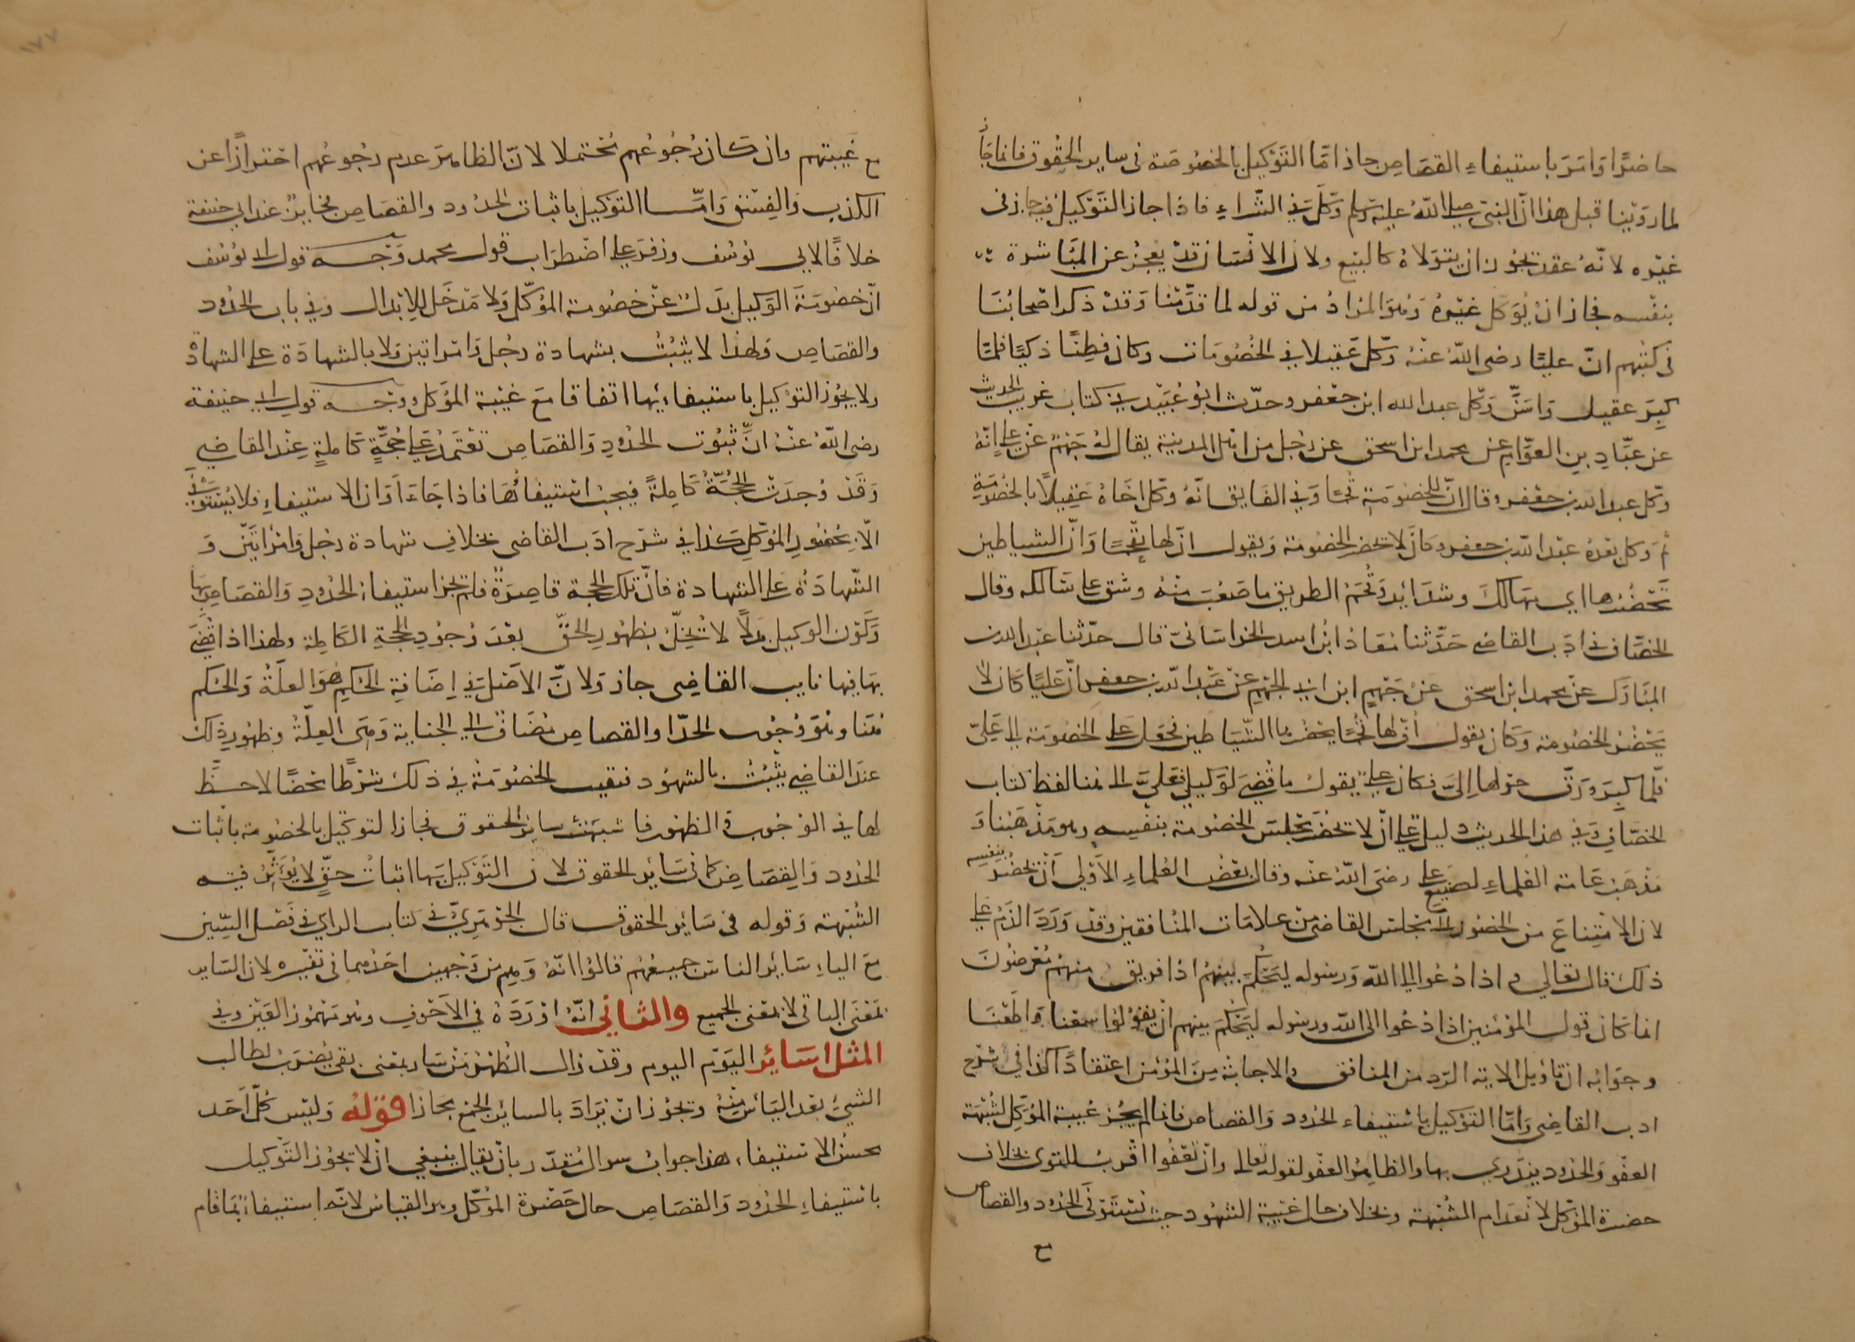 حاضرا وامر باستيفاء القصاص جاز اما التوكيل بالخصومة في ساير الحقوق فانما جاز
لما روينا قبل هذا ان النبي صلى الله عليه وسلم وكل في الشراء فاذا جاز التوكيل فيه جاز في
غيره لانه عقد يجوز ان يتولاه كالبيع ولان الانسان قد يعجز عن المباشرة
بنفسه فجاز ان يوكل غيره وهو المراد من قوله لما قدمنا وقد ذكر اصحابنا
في كتبهم ان عليا رضى الله عنه وكل عقيلا في الخصومات وكان فطنا ذكيا فلما
كبر عقيل واسن وكل عبد الله ابن جعفر وحدث ابو عبيد في كتاب غريب الحديث
عن عباد بن العوام عن محمد ابن اسحق عن رجل من اهل المدينة يقال له جهم عن علي انه
وكل عبد الله بن جعفر وقال ان للخصومة قحما وفي الفايق انه وكل اخاه عقيلا بالخصومة
ثم وكل بعده عبد الله بن جعفر وكان لا يحضر الخصومة ويقول ان لها لقحما وان الشياطين
تحضرها اي مهالك وشدائد وقحم الطريق ما صعب منه وشق على سالكه وقال
الخصاف في ادب القاضي حدثنا معاذ ابن اسد الخراساني قال حدثنا عبد الله بن
المبارك عن محمد ابن اسحق عن جهم ابن ابي الجهم عن عبد الله بن جعفر ان عليا كان لا
يحضر الخصومة وكان يقول ان لها قحما يحضرها الشياطين فجعل على الخصومة الى علي
فلما كبر ورق حولها الي فكان علي يقول ما قضي لوكيلي فعلي الى هنا لفظ كتاب
الخصاف وفي هذا الحديث دليل على ان لا تحضر مجلس الخصومة بنفسه وهو مذهبنا و
مذهب عامة العلماء لصنيع علي رضى الله عنه وقال بعض العلماء الاولى ان يحضر بنفسه
لان الامتناع من الحضور الى مجلس القاضي من علامات المنافقين وقد ورد الذم على
ذلك قال تعالى و اذا دعوا الى الله ورسوله ليحكم بينهم اذا فريق منهم معرضون
انما كان قول المؤمنين اذا دعوا الى الله ورسوله ليحكم بينهم ان يقولوا سمعنا واطعنا
وجوابه ان تاويل الاية الرد من المنافق والاجابة من المؤمن اعتقادا كذا في شرح
ادب القاضي واما التوكيل باستيفاء الحدود والقصاص فانما لم يجز غيبة الموكل لشبهة
العفو والحدود يندري بها والظاهر العفو لقوله تعالى وان تعفوا اقرب للتقوى بخلاف
حضرة الموكل لانعدام الشبهة وبخلاف حال غيبة الشهود حيث تستوفى الحدود والقصاص
مع
مع غيبتهم وان كان رجوعهم محتملا لان الظاهر عدم رجوعهم احترازا عن
الكذب والفسق واما التوكيل باثبات الحدود والقصاص فجايز عند ابي حنيفة
خلافا لابي يوسف وزفر على اضطراب قول محمد وجه قول ابي يوسف
ان خصومة الوكيل بدل عن خصومة الموكل ولا مدخل للابدال وفي باب الحدود
والقصاص ولهذا لا يثبت بشهادة رجل وامراتين ولا بالشهادة على الشهادة
ولا يجوز التوكيل باستيفائها اتفاقا مع غيبة الموكل وجه قول ابي حنيفة
رضى الله عنه ان ثبوت الحدود والقصاص تعتمد على حجة كاملة عند القاضي
وقد وجدت الحجة كاملة فيجب استيفاؤها فاذا جاء اوان الاستيفاء فلا يستوفى
الا بحضور الموكل كذا في شرح ادب القاضي بخلاف شهادة رجل وامراتين و
الشهادة على الشهادة فان تلك الحجة قاصرة فلم يجز استيفاء الحدود والقصاص بها
وكون الوكيل بدلا لا تخل بظهور الحق بعد وجود الحجة الكاملة ولهذا اذا قضى
بها فيها نايب القاضي جاز ولان الاصل في اضافة الحكم هو العلة والحكم
هنا وهو وجوب الحد او القصاص مضاف الى الجناية وهي العلة وظهور ذلك
عند القاضي يثبت بالشهود فبقيت الخصومة في ذلك شرطا محضا لا حظ
لها في الوجوب والظهور فاشبهت ساير الحقوق فجاز التوكيل بالخصومة باثبات
الحدود والقصاص كما في ساير الحقوق لان التوكيل بها اثبات حق لا يؤثر فيه
الشبهة وقوله في ساير الحقوق قال الجوهري في كتاب الراي في فصل السين
مع الياء ساير الناس جميعهم قالوا انه وهم من وجهين احدهما في تفسيره لان الساير
بمعنى الباقى لا بمعنى الجميع والثاني انه اورده في الاجوف وهو مهموز العين وفي
المثل اساير اليوم اليوم وقد زال الظهر من سار بمعنى بقي يضرب لطالب
الشيء بعد الياس منه ويجوز ان يراد بالساير الجمع مجازا قوله وليس كل احد
يحسن الاستيفاء هذا جواب سوال مقدر بان يقال ينبغي ان لا يجوز التوكيل
باستيفاء الحدود والقصاص حال حضرة الموكل وهو القياس لانه استيفاء بما قام
١٧٧